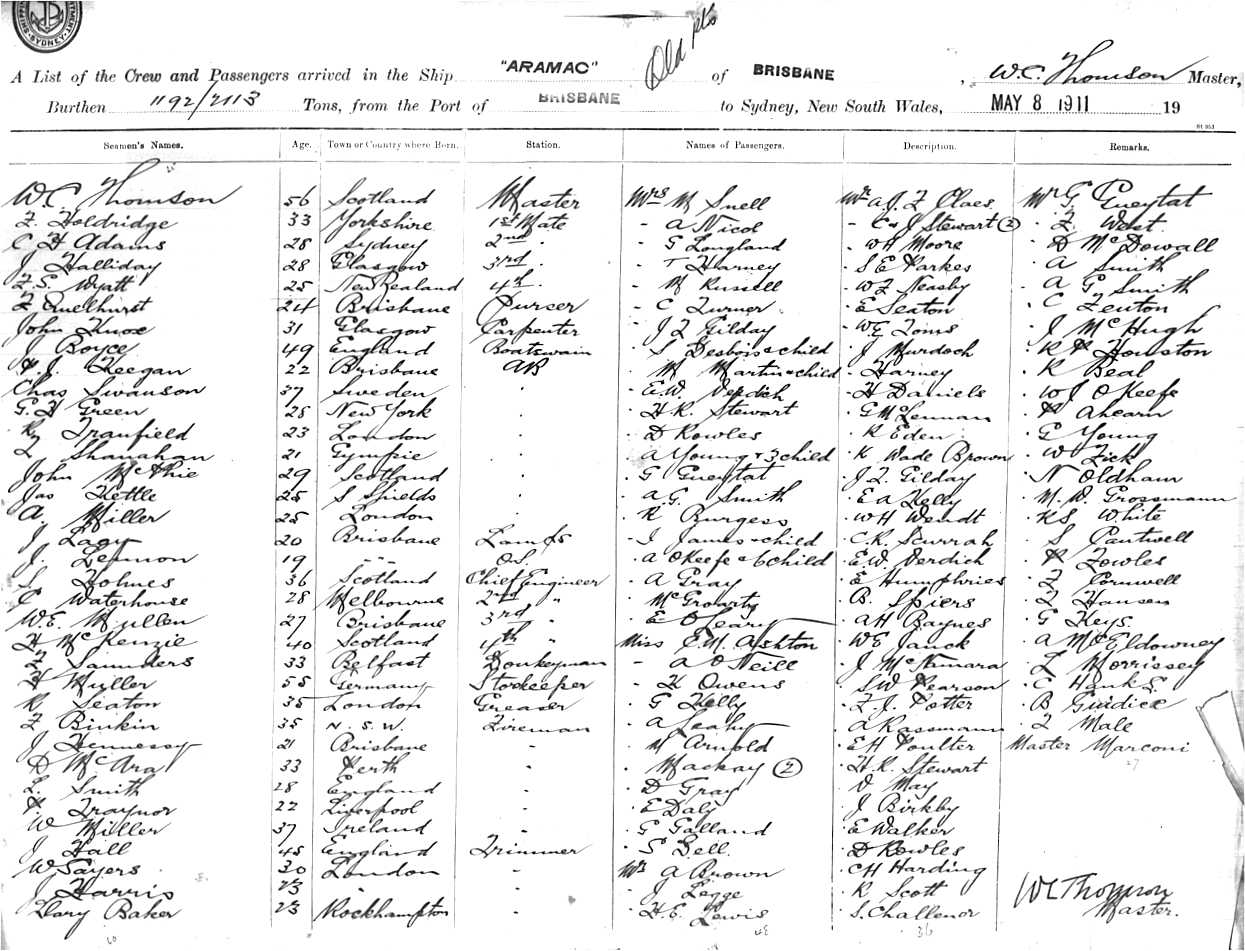 SYDNEY
Old pts
A List of the Crew and Passengers arrived in the Ship "ARAMAC" of BRISBANE, W.C. Thomson Master,
Burthen 1192/2113 Tons, from the Port of BRISBANE to Sydney, New South Wales, MAY 8 1911 19
Seamen's Names. Age. Town or Country where Born. Station. Names of Passengers. Description. Remarks.
W.C. Thomson 56 Scotland Master Mrs M Snell Mr A.J. Z Claes Mr G Gueytat
F. Holdridge 33 Yorkshire 1st Mate - A Nicol - C & J Stewart (2) - F. West
C H Adams 28 Sydney 2nd . - G Longland . W H Moore . D McDowall
J Halliday 28 Glasgow 3rd . - T Harney . S E Parkes . A Smith
F.S. Wyatt 25 New Zealand 4th . - M Russell . W F Neasby . A G Smith
F Quelhurst 24 Brisbane Purser - C Turner . E Seaton . C Fenton
John Knox 31 Glasgow Carpenter . J L Gilday . W E Toms . J McHugh
J Boyce 49 England Boatswain . S Desbois & child . J Murdoch . R H Houston
H J. Keegan 22 Brisbane AB . M Martin & child . Harney . R Beal
Chas Swanson 37 Sweden . . E.W. Verdich . H Daniels . W J O'Keefe
G. H Green 28 New York . . H R. Stewart . G McLennan . P Ahearn
Ry Tranfield 23 London . . D Rowles . R Eden . G Young
L Shanahan 21 Gympie . . A Young & 3 child . R Wade Brown . W Fick
John McPhie 29 Scotland . . G Gueytat . J L. Gilday . N Oldham
Jas Kettle 25 S Shields . . A G. Smith . E A Kelly . M. W. Grossmann
A. Miller 25 London . . R Burgess . W H Wendt . R S White
J. Lacy 20 Brisbane Lamps . I James & child . C.R. Scurrah . S Pantwell
J. Lennon 19 " " O.S. . A O'Keefe & 6 child . E.W. Verdich . P Fowles
S Holmes 36 Scotland Chief Engineer . A Gray . E Humphries . F Cornwell
C Waterhouse 28 Melbourne 2nd " . McGroarty . B. Spiers . F Hansen
W.E. Mullen 27 Brisbane 3rd " . E O'Leary . A H Baynes . G Keys
H McKenzie 40 Scotland 4th " Miss E.M. Ashton . W E Janck . A McEldowney
F Saunders 33 Belfast Donkeyman - A O'Neill . J McNamara . L Morrissey
H Muller 55 Germany Storekeeper - H Owens . S W Pearson . C Hanks
R Seaton 35 London Greaser . G Kelly . F. J. Potter . B Guidice
F Binkin 35 N.S.W. Fireman . A Leahy . A Rassmann . F Male
J Hennessy 21 Brisbane - . M Arnold . E H Poulter Master Marconi
D McAra 33 Perth - . Mackay (2) . H R. Stewart 27
L. Smith 28 England - . D Gray . V May
P Traynor 22 Liverpool - . E Daly . J Birkby
W Miller 37 Ireland - . G Galland . E Walker
J Hall 45 England Trimmer . S Bell . D Rowles
W Sayers 30 London - Mr A Brown . C H Harding
J Harris 23 " - . J Legge . R Scott W C Thomson
Dary Baker 23 Rockhampton - . H.E. Lewis . S. Challenor Master.
48 36